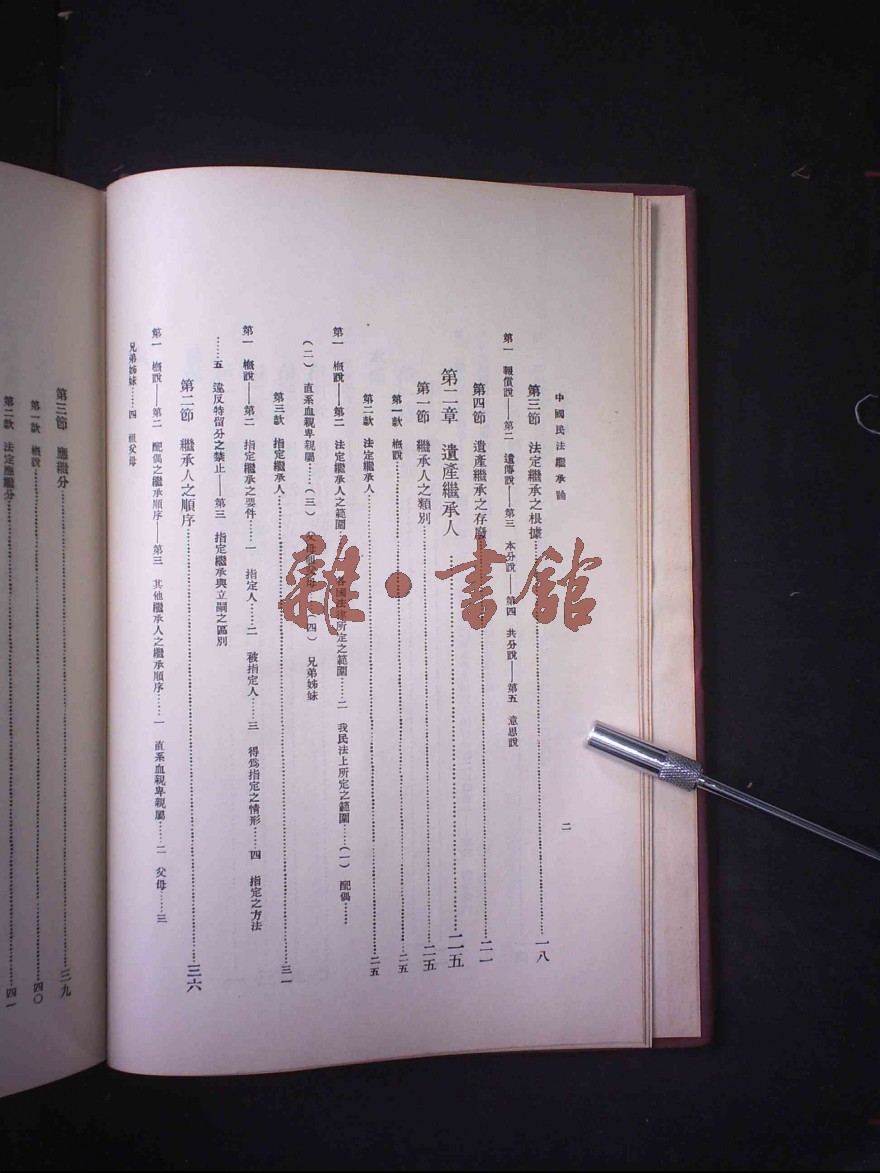 中國民法繼承論
二
第三節 法定繼承之根據……一八
第一 報償說——第二 遺傳說——第三 本分說——第四 共分說——第五 意思說
第四節 遺產繼承之存廢……二一
第二章 遺產繼承人……二五
第一節 繼承人之類別……二五
第一款 槪說……二五
第二款 法定繼承人……二五
第一 槪說——第二 法定繼承人之範圍……一 各國法律所定之範圍……二 我民法上所定之範圍……(一) 配偶……
(二) 直系血親卑親屬……(三) 父母祖父母……(四) 兄弟姊妹
第三款 指定繼承人……三一
第一 槪說——第二 指定繼承之要件……一 指定人……二 被指定人……三 得爲指定之情形……四 指定之方法
……五 違反特留分之禁止——第三 指定繼承與立嗣之區別
第二節 繼承人之順序……三六
第一 槪說——第二 配偶之繼承順序——第三 其他繼承人之繼承順序……一 直系血親卑親屬……二 父母……三
兄弟姊妹……四 祖父母
第三節 應繼分……三九
第一款 槪說……四〇
第二款 法定應繼分……四一
雜·書館